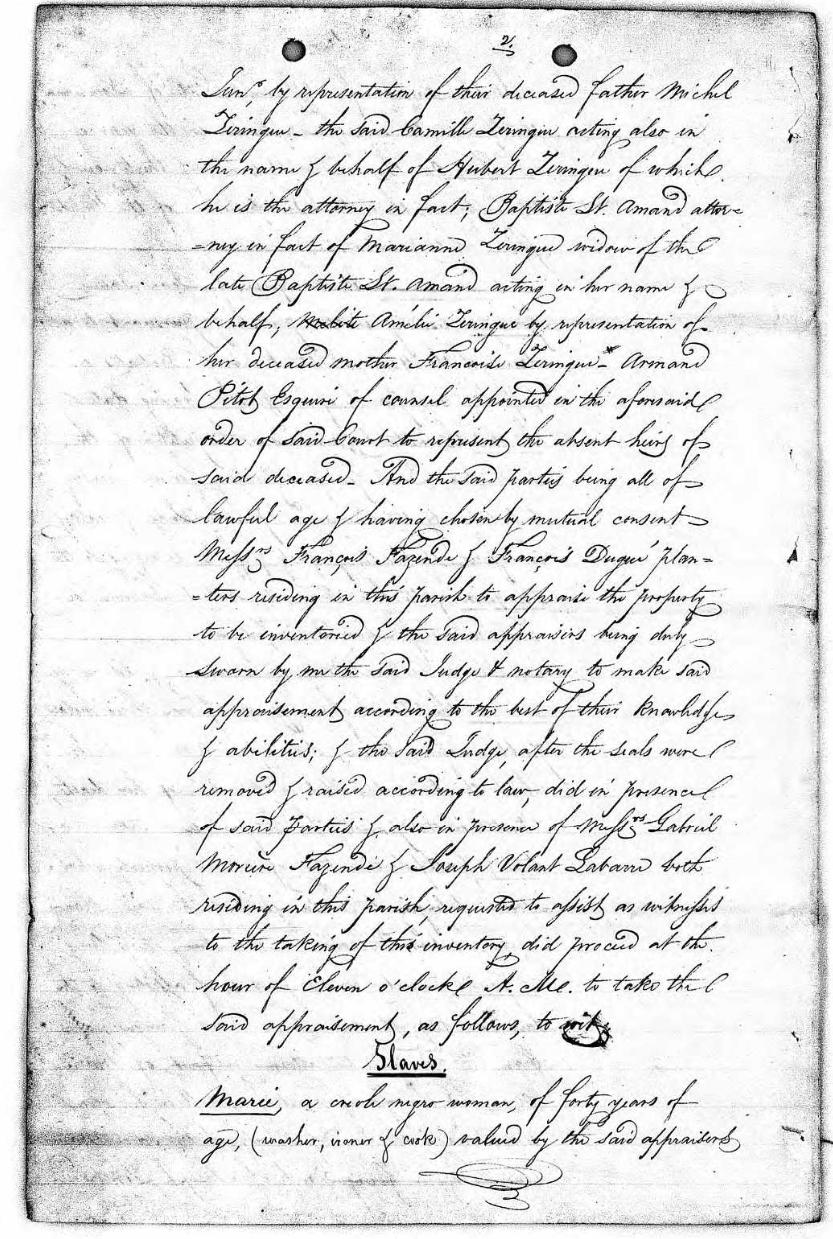 2.
Junr, by representation of their deceased father Michel
Zeringue - the said Camille Zeringue acting also in
the name & behalf of Hubert Zeringue of which
he is the attorney in fact; Baptiste St. Amand attor=
=ney in fact of Marianne Zeringue widow of the
late Baptiste St. Amand acting in her name &
behalf; Amélie Zeringue by representation of
her deceased mother Francoise Zeringue - Armand
Pitot Esquire of counsel appointed in the aforesaid
order of said Court to represent the absent heirs of
said deceased - And the said parties being all of
lawful age & having chosen by mutual consent
Messrs François Fazende & François Dugué plan=
=ters residing in this parish to appraise the property
to be inventoried & the said appraisers being duly
sworn by me the said Judge & notary to make said
appraisement according to the best of their knowledge
& abilities; & the said Judge, after the seals were
removed & raised according to law, did in presence
of said Parties & also in presence of Messrs Gabriel
Fazende & Joseph Volant Labarre both
residing in this parish, requested to assist as witnesses
to the taking of this inventory, did proceed at the
hour of Eleven o'clock A.M. to take the
said appraisement, as follows, to wit,
Slaves.
Marie, a creole negro woman, of forty years of
age, (washer, ironer & cook) valued by the said appraisers